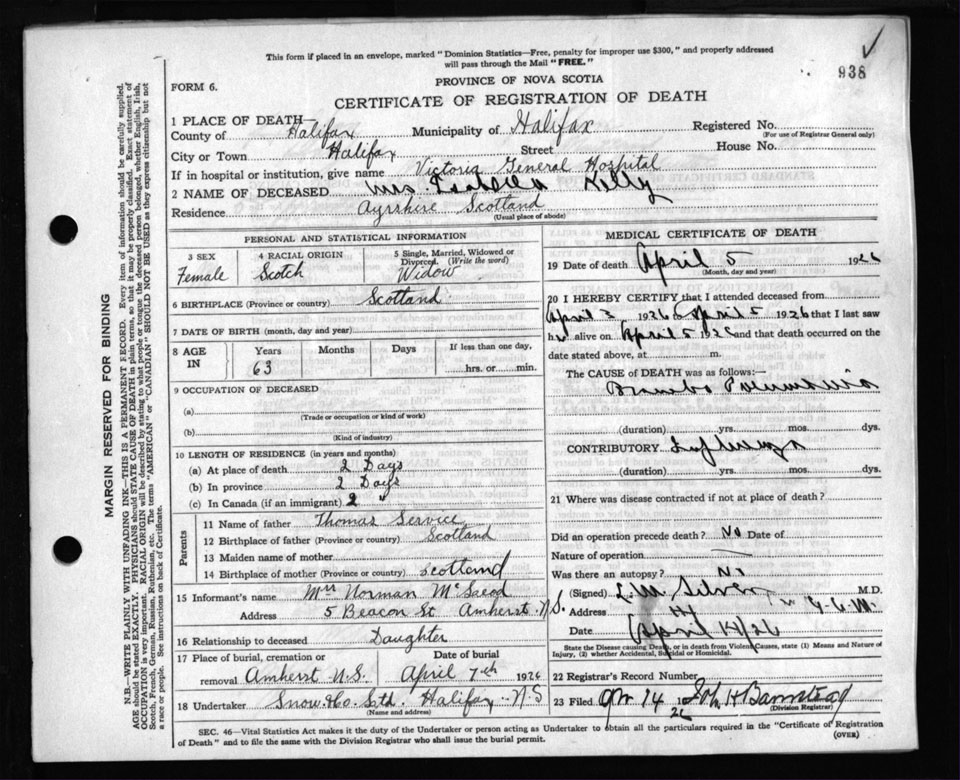 This form if placed in an envelope, marked "Dominion Statistics—Free, penalty for improper use $300," and properly addressed
will pass through the Mail "FREE."
938
PROVINCE OF NOVA SCOTIA
FORM 6.
CERTIFICATE OF REGISTRATION OF DEATH
1 PLACE OF DEATH—
County of Halifax Municipality of Halifax Registered No.
(For use of Registrar General only)
City or Town Halifax Street House No.
If in hospital or institution, give name Victoria General Hospital
2 NAME OF DECEASED Mrs. Isabella Kelly
Residence Ayrshire Scotland
(Usual place of abode)
PERSONAL AND STATISTICAL INFORMATION
3 SEX 4 RACIAL ORIGIN 5 Single, Married, Widowed or
Divorced. (Write the word)
Female Scotch Widow
6 BIRTHPLACE (Province or country) Scotland
7 DATE OF BIRTH (month, day and year)
8 AGE IN Years Months Days If less than one day,
63 hrs. or min.
9 OCCUPATION OF DECEASED
(a)
(Trade or occupation or kind of work)
(b)
(Kind of industry)
10 LENGTH OF RESIDENCE (in years and months)
(a) At place of death 2 Days
(b) In province 2 Days
(c) In Canada (if an immigrant) 2 "
Parents
11 Name of father Thomas Service
12 Birthplace of father (Province or country) Scotland
13 Maiden name of mother
14 Birthplace of mother (Province or country) Scotland
15 Informant's name Mrs Norman McLeod
Address 5 Beacon St. Amherst N.S.
16 Relationship to deceased Daughter
17 Place of burial, cremation or Date of burial
removal Amherst N.S. April 7th 1926
18 Undertaker Snow & Co. Ltd. Halifax N.S
(Name and address)
MEDICAL CERTIFICATE OF DEATH
19 Date of death April 5 1926
(Month, day and year)
20 I HEREBY CERTIFY that I attended deceased from
April 3 1926 to April 5 1926 that I last saw
her alive on April 5 1926 and that death occurred on
date stated above, at m.
The CAUSE OF DEATH was as follows:—
Broncho Pneumonia
(duration) yrs. mos. dys.
CONTRIBUTORY Influenza
(duration) yrs. mos. dys.
21 Where was disease contracted if not at place of death?
Did an operation precede death? No Date of
Nature of operation
Was there an autopsy? No
(Signed) L.M. Silver M.D.
Address Hx
Date April 14/26
State the Disease causing Death, or in death from Violent Causes, state (1) Means and Nature of
Injury, (2) whether Accidental, Suicidal or Homicidal.
22 Registrar's Record Number
23 Filed Apr 14 1926 John H Barnstead
(Division Registrar)
SEC. 46—Vital Statistics Act makes it the duty of the Undertaker or person acting as Undertaker to obtain all the particulars required in the "Certificate of Registration
of Death" and to file the same with the Division Registrar who shall issue the burial permit.
(OVER)
MARGIN RESERVED FOR BINDING
N.B.—WRITE PLAINLY WITH UNFADING INK—THIS IS A PERMANENT RECORD. Every item of information should be carefully supplied.
AGE should be stated EXACTLY. PHYSICIANS should STATE CAUSE OF DEATH in plain terms, so that it may be properly classified. Exact statement of
OCCUPATION is very important. RACIAL ORIGIN will be described by stating to what people or tongue the deceased person belonged, whether English, Irish,
Scotch, French, German, Russian, Ruthenian, etc. The terms "AMERICAN" or "CANADIAN" SHOULD NOT BE USED as they express citizenship but not
a race or people. See instructions on back of Certificate.